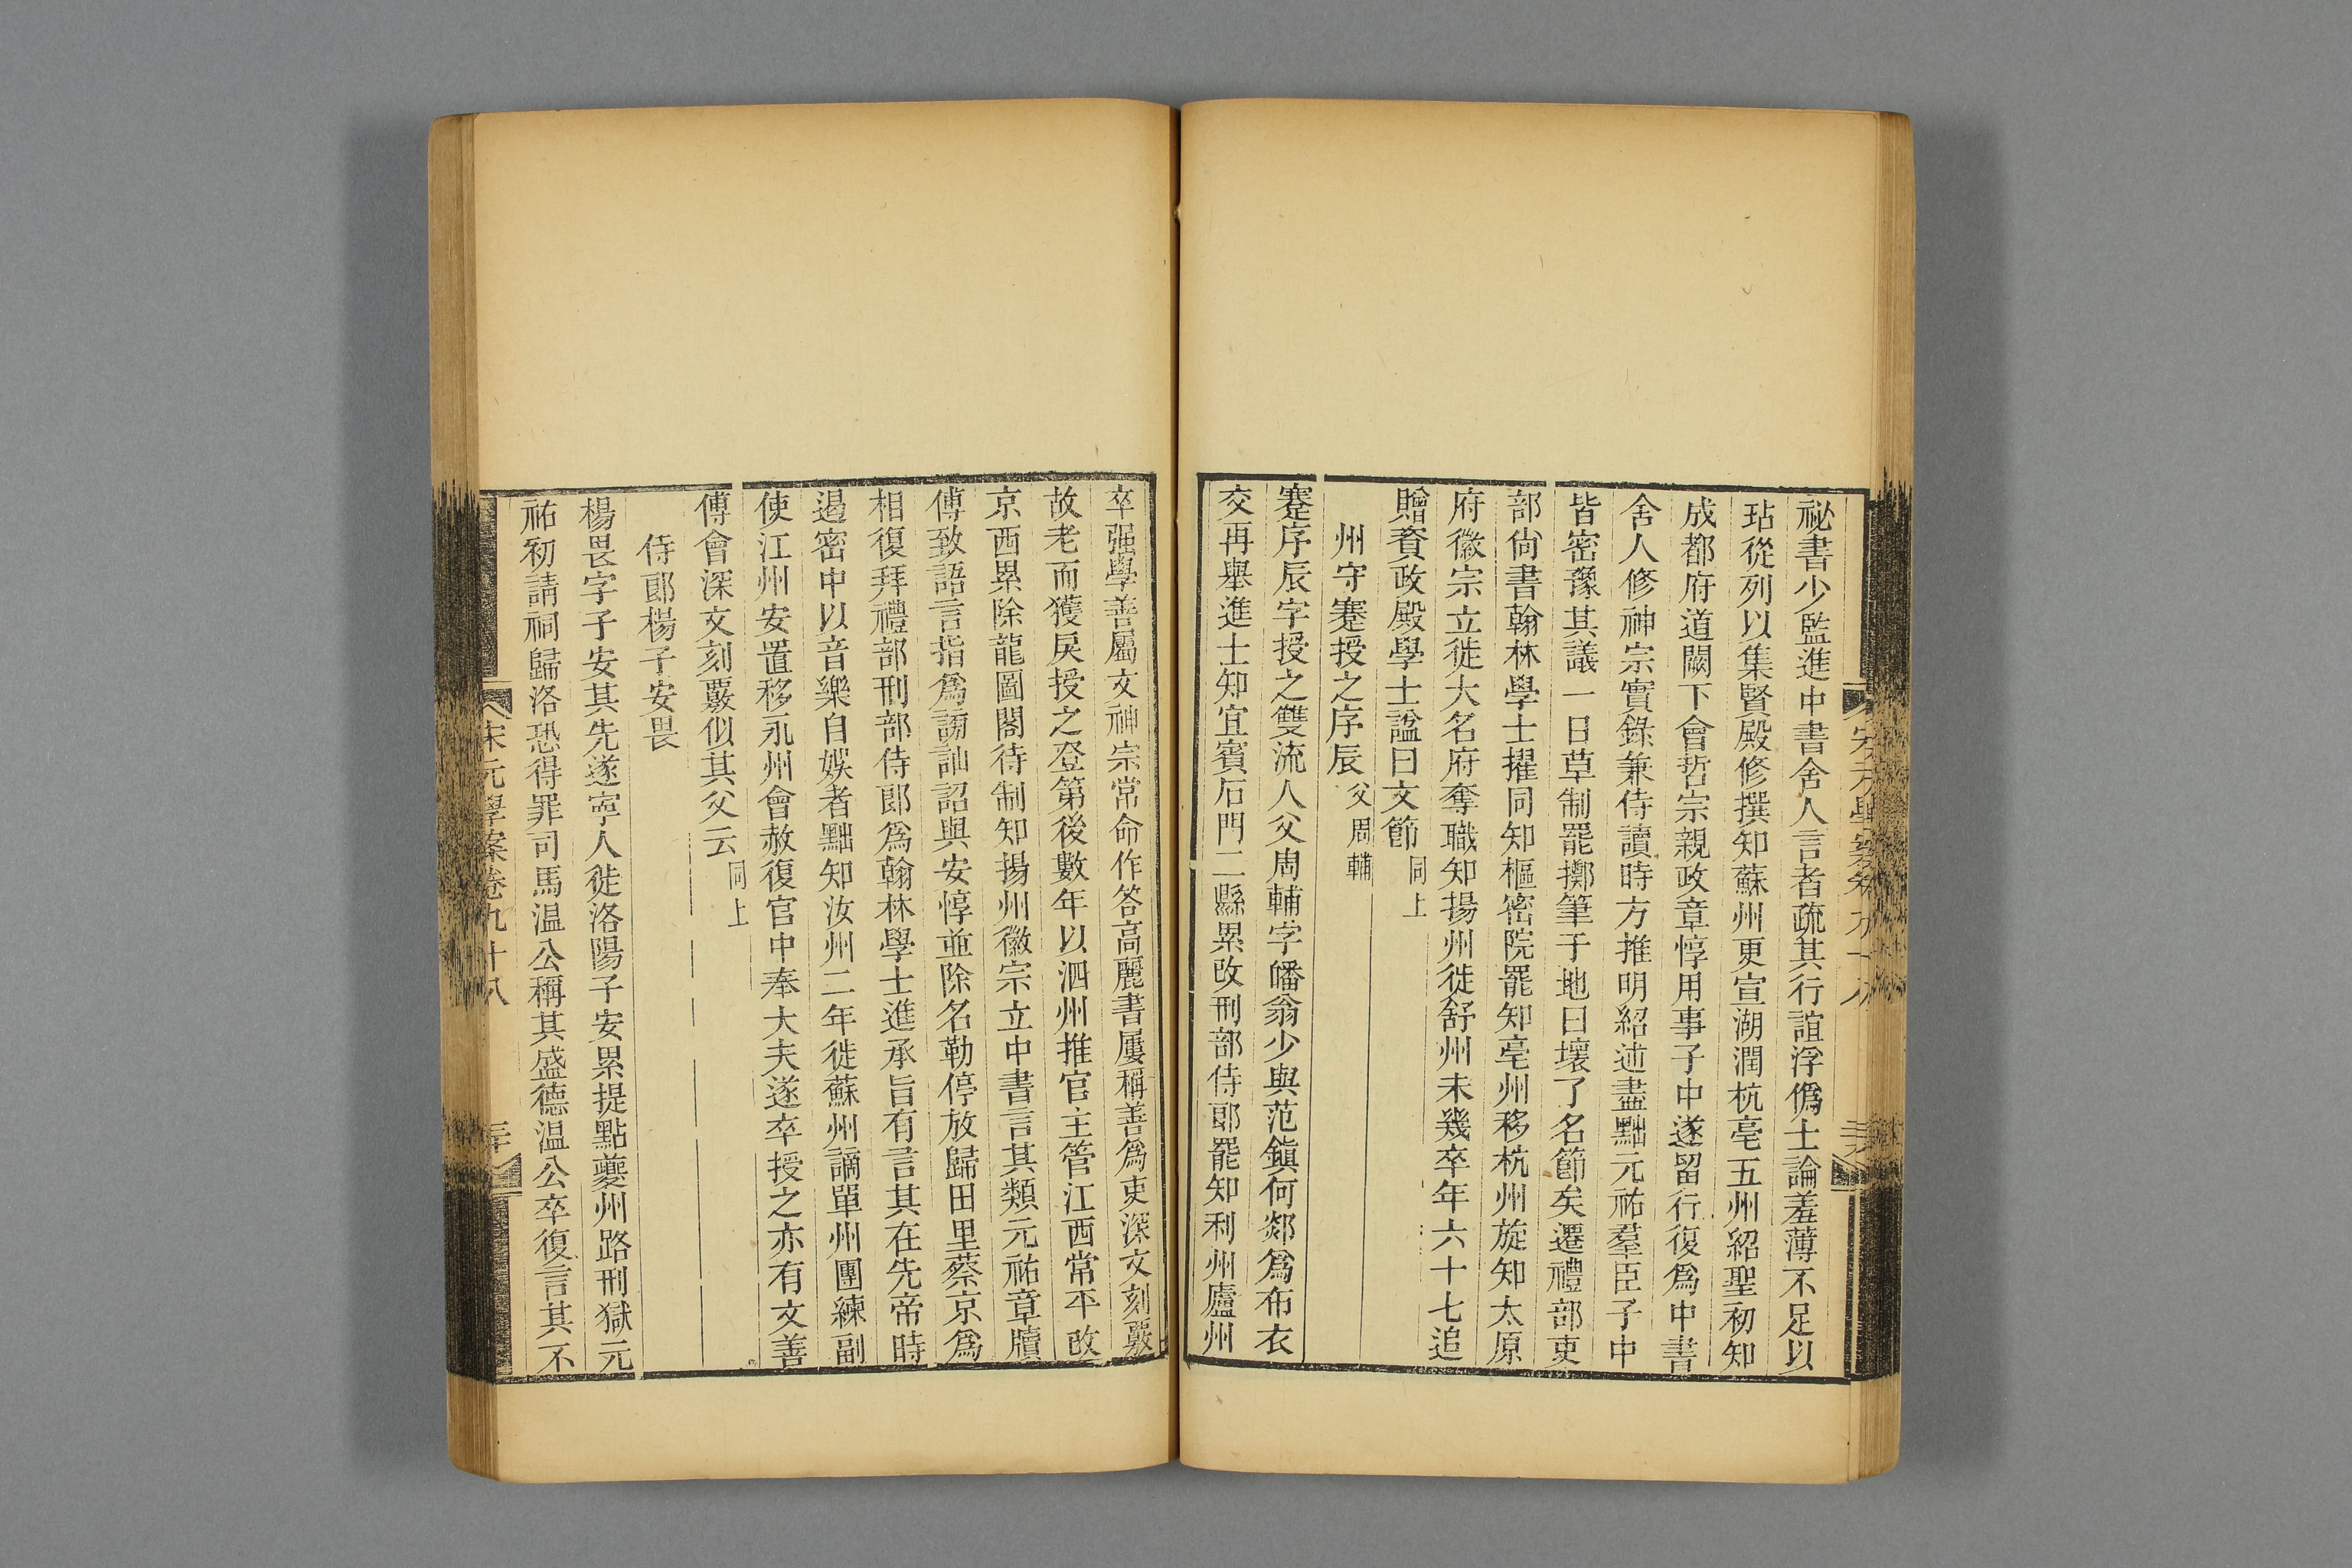 祕書少監進中書舍人言者疏其行誼浮僞士論羞薄不足以
玷從列以集賢殿修撰知蘇州更宣湖潤杭亳五州紹聖初知
成都府道闕下會哲宗親政章惇用事子中遂留行復爲中書
舍人修神宗實錄兼侍讀時方推明紹述盡黜元祐羣臣子中
皆密豫其議一日草制罷擲筆于地曰壞了名節矣遷禮部吏
部尙書翰林學士擢同知樞密院罷知亳州移杭州旋知太原
府徽宗立徙大名府奪職知揚州徙舒州未幾卒年六十七追
贈資政殿學士諡曰文節同上
州守蹇授之序辰父周輔
蹇序辰字授之雙流人父周輔字皤翁少與范鎭何郯爲布衣
交再舉進士知宜賓石門二縣累改刑部侍郞罷知利州廬州
卒强學善屬文神宗常命作答高麗書屢稱善爲吏深文刻覈
故老而獲戾授之登第後數年以泗州推官主管江西常平改
京西累除龍圖閣待制知揚州徽宗立中書言其類元祐章牘
傅致語言指爲謗訕詔與安惇並除名勒停放歸田里蔡京爲
相復拜禮部刑部侍郞爲翰林學士進承旨有言其在先帝時
遏密中以音樂自娛者黜知汝州二年徙蘇州謫單州團練副
使江州安置移永州會赦復官中奉大夫遂卒授之亦有文善
傅會深文刻覈似其父云同上
侍郞楊子安畏
楊畏字子安其先遂寧人徙洛陽子安累提點夔州路刑獄元
祐初請祠歸洛恐得罪司馬温公稱其盛德温公卒復言其不
宋元學案卷九十八